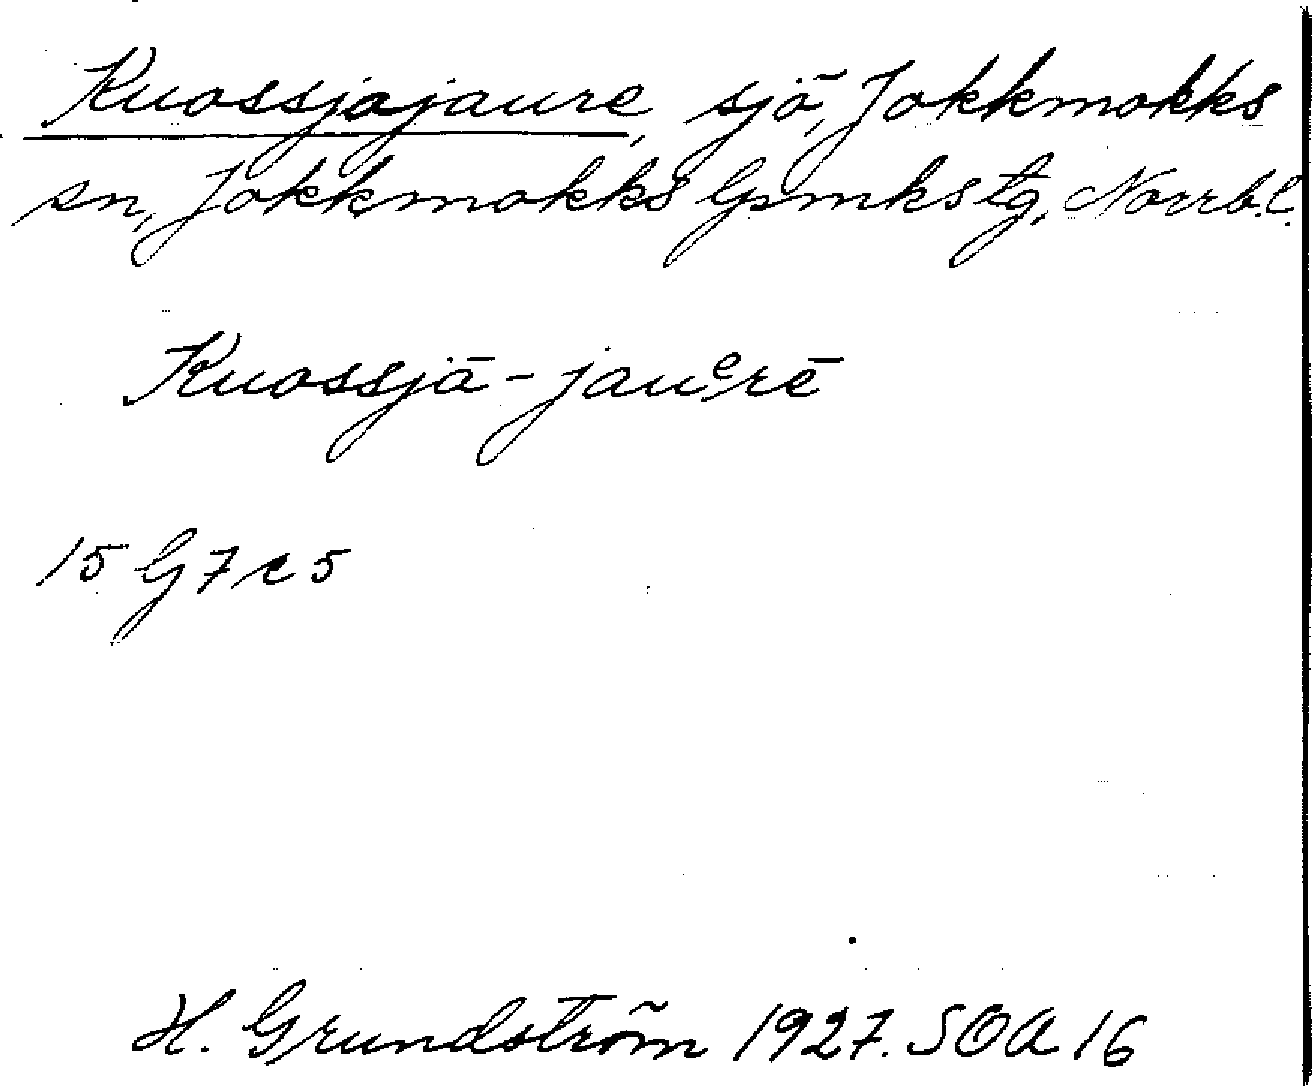 Kuossjajaure, sjö, Jokkmokks
sn, Jokkmokks lpmkstg, Norrb.l.
Kuossjā-jauᵉrē
15 G 7 e 5
H. Grundström 1927. SOA 16